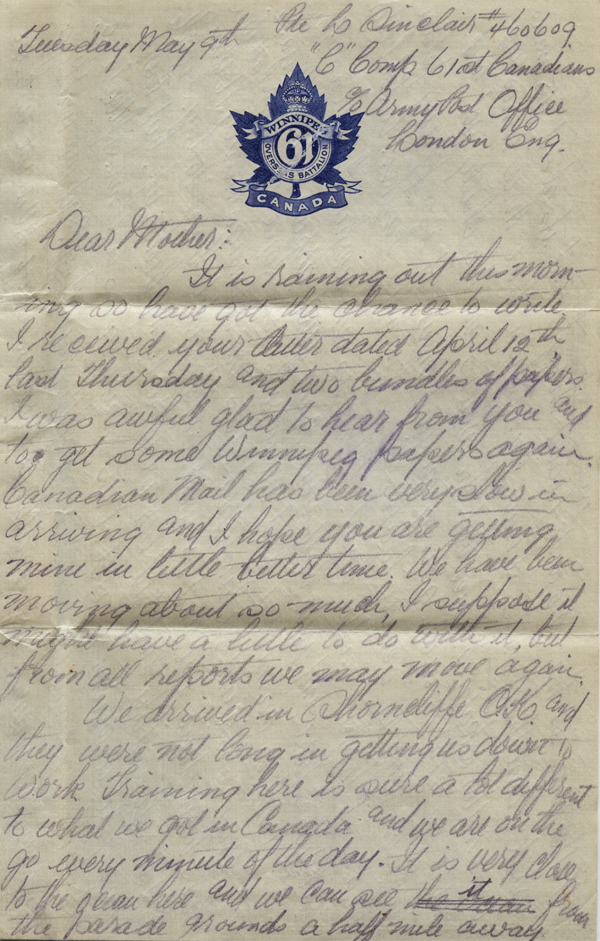 Tuesday May 9th
Pte L Sinclair #460609
"C" Comp 61st Canadians
c/o Army Post Office
London Eng.
WINNIPEG
61
OVERSEAS BATTALION
CANADA
Dear Mother:
It is raining out this morn-
ing so have got the chance to write
I received your letter dated April 12th
last Thursday and two bundles of papers.
I was awful glad to hear from you and
to get some Winnipeg papers again.
Canadian Mail has been very slow in
arriving and I hope you are getting
mine in little better time. We have been
moving about so much, I suppose it
might have a little to do with it, but
from all reports we may move again.
We arrived in Shorncliffe O.K. and
they were not long in getting us down to
work Training here is sure a lot different
to what we got in Canada and we are on the
go every minute of the day. It is very close
to the ocean here and we can see the ocean it from
the parade grounds a half mile away.